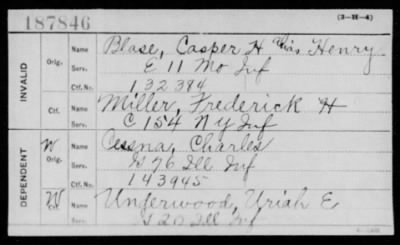 187846 (3-H-4)
INVALID
Orig. Name Blase, Casper H alias Henry
Serv. E 11 Mo Inf
Ctf. No. 132384
Ctf. Name Miller, Frederick H
Serv. C 154 N Y Inf
DEPENDENT
W Orig. Name Cessna, Charles
Serv. G 76 Ill Inf
Ctf. No. 143945
W Ctf. Name Underwood, Uriah E
Serv. G 20 Ill Inf